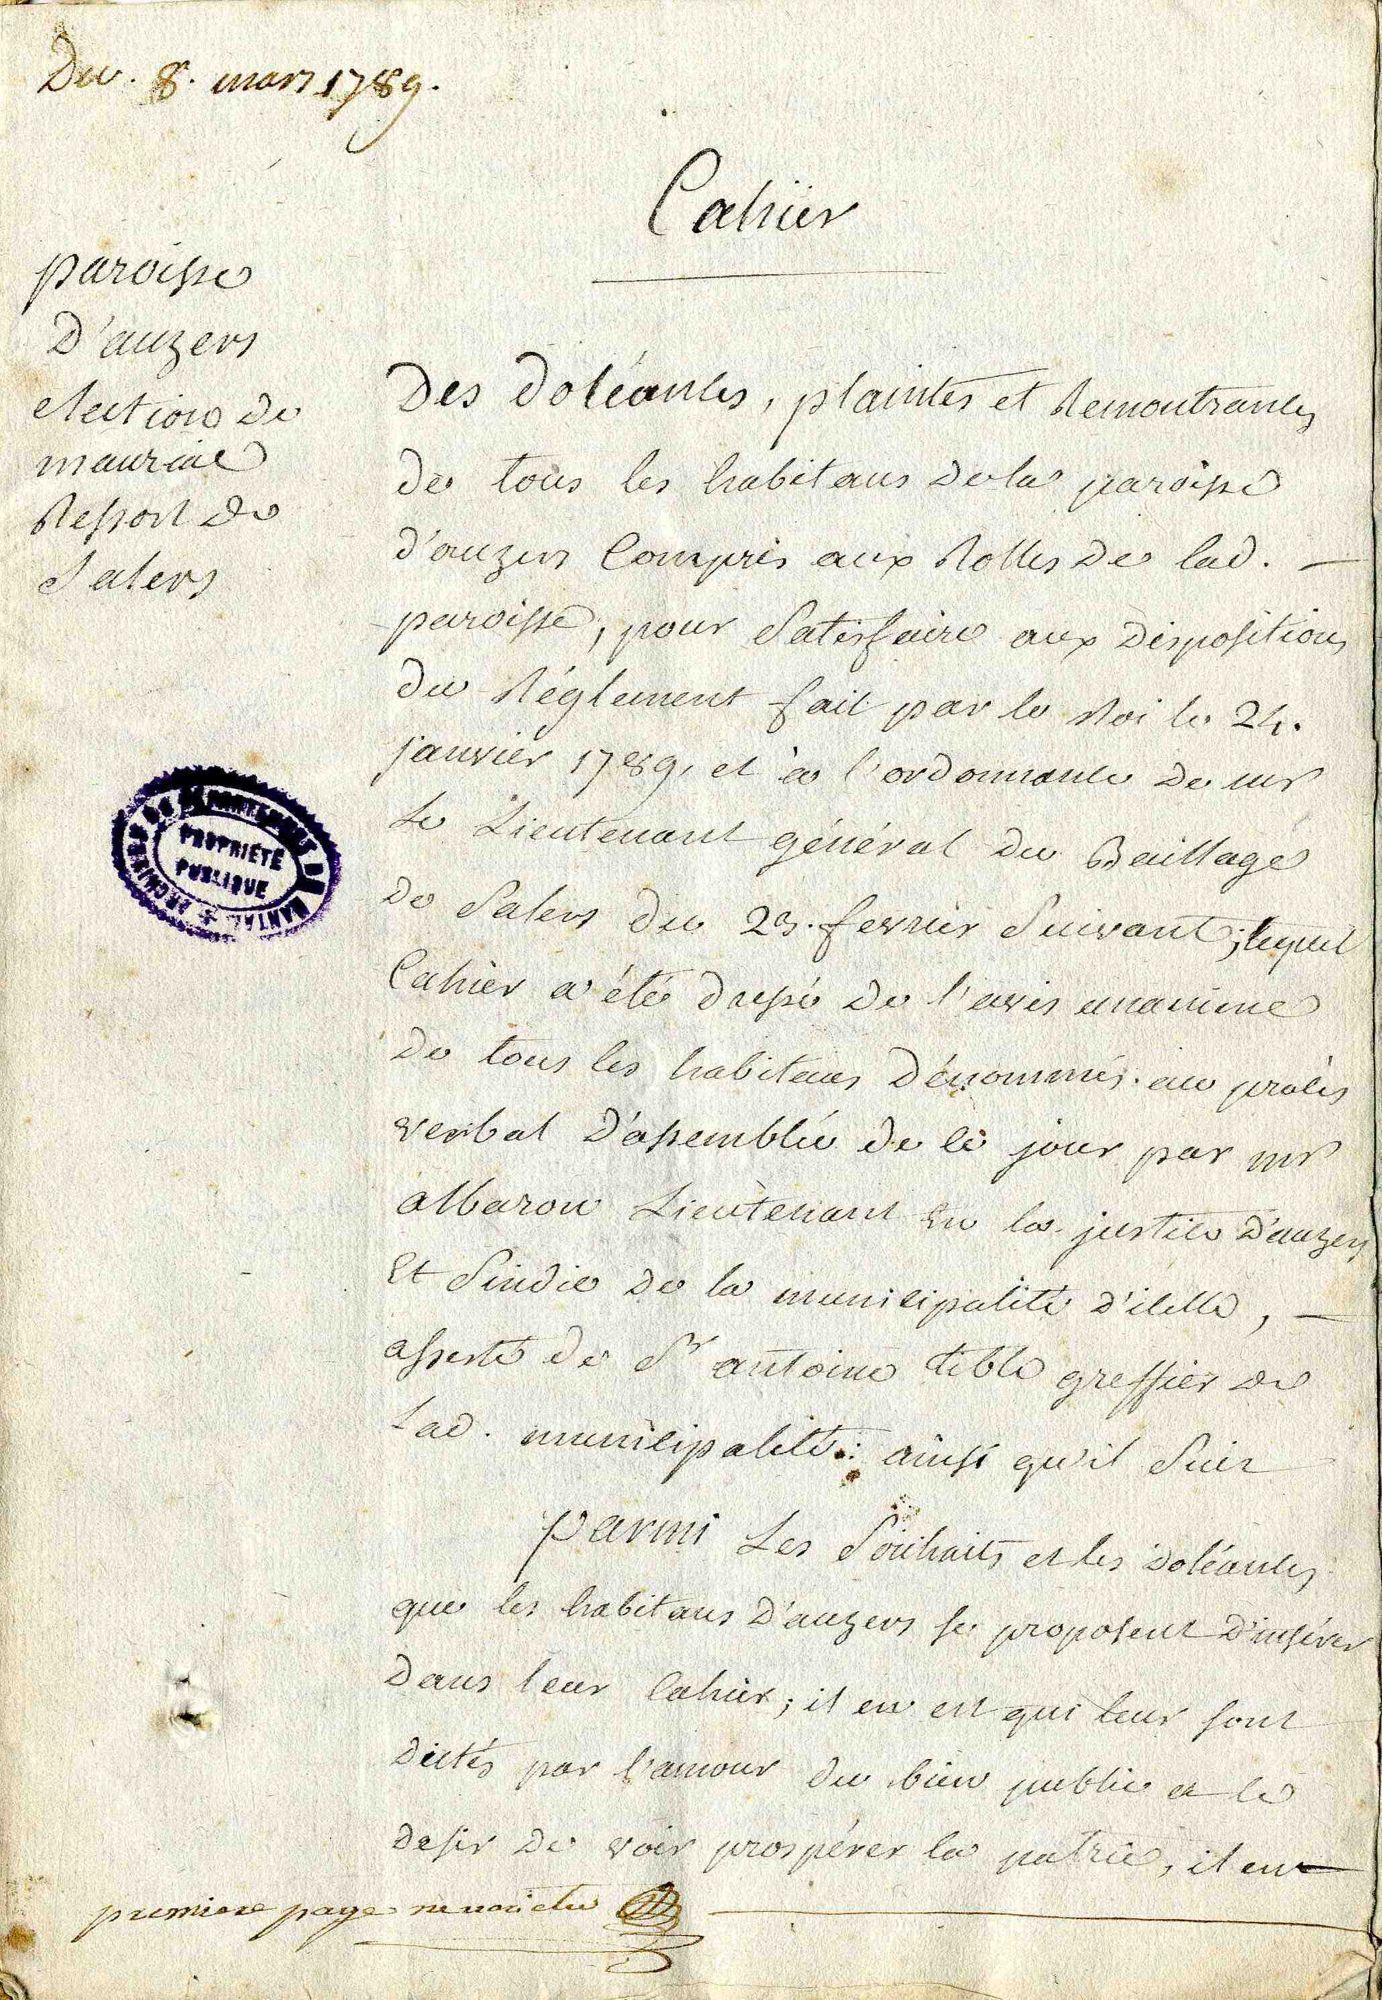 Du. 8. mars 1789.
Cahier
paroisse
D'auzers
election de
mauriac
Ressort de
Salers
Des doléances, plaintes et Remontrances
de tous les habitans de la paroisse
d'auzers Compris aux Rolles de lad.
paroisse, pour Satisfaire aux dispositions
du Réglement fait par le Roi le 24.
janvier 1789, et à l'ordonnance de mr
Le Lieutenant général du Baillage
de Salers du 23. fevrier Suivant; lequel
Cahier a été dressé de l'avis unanime
de tous les habitans dénommés au procès
verbal d'assemblée de ce jour par mr
albaron Lieutenant en la justice d'auzers
Et Sindic de la municipalité d'icelle,
assisté de Sr antoine greffier de
Lad. municipalité: ainsi qu'il Suit
parmi Les Souhaits et les doléances
que les habitans D'auzers se proposent D'insérer
Dans leur Cahier; il en est qui leur sont
dictés par l'amour du bien public et le
desir de voir prospérer la patrie, il en
premiere page
ARCHIVES DU DÉPARTEMENT DU CANTAL
PROPRIÉTÉ
PUBLIQUE